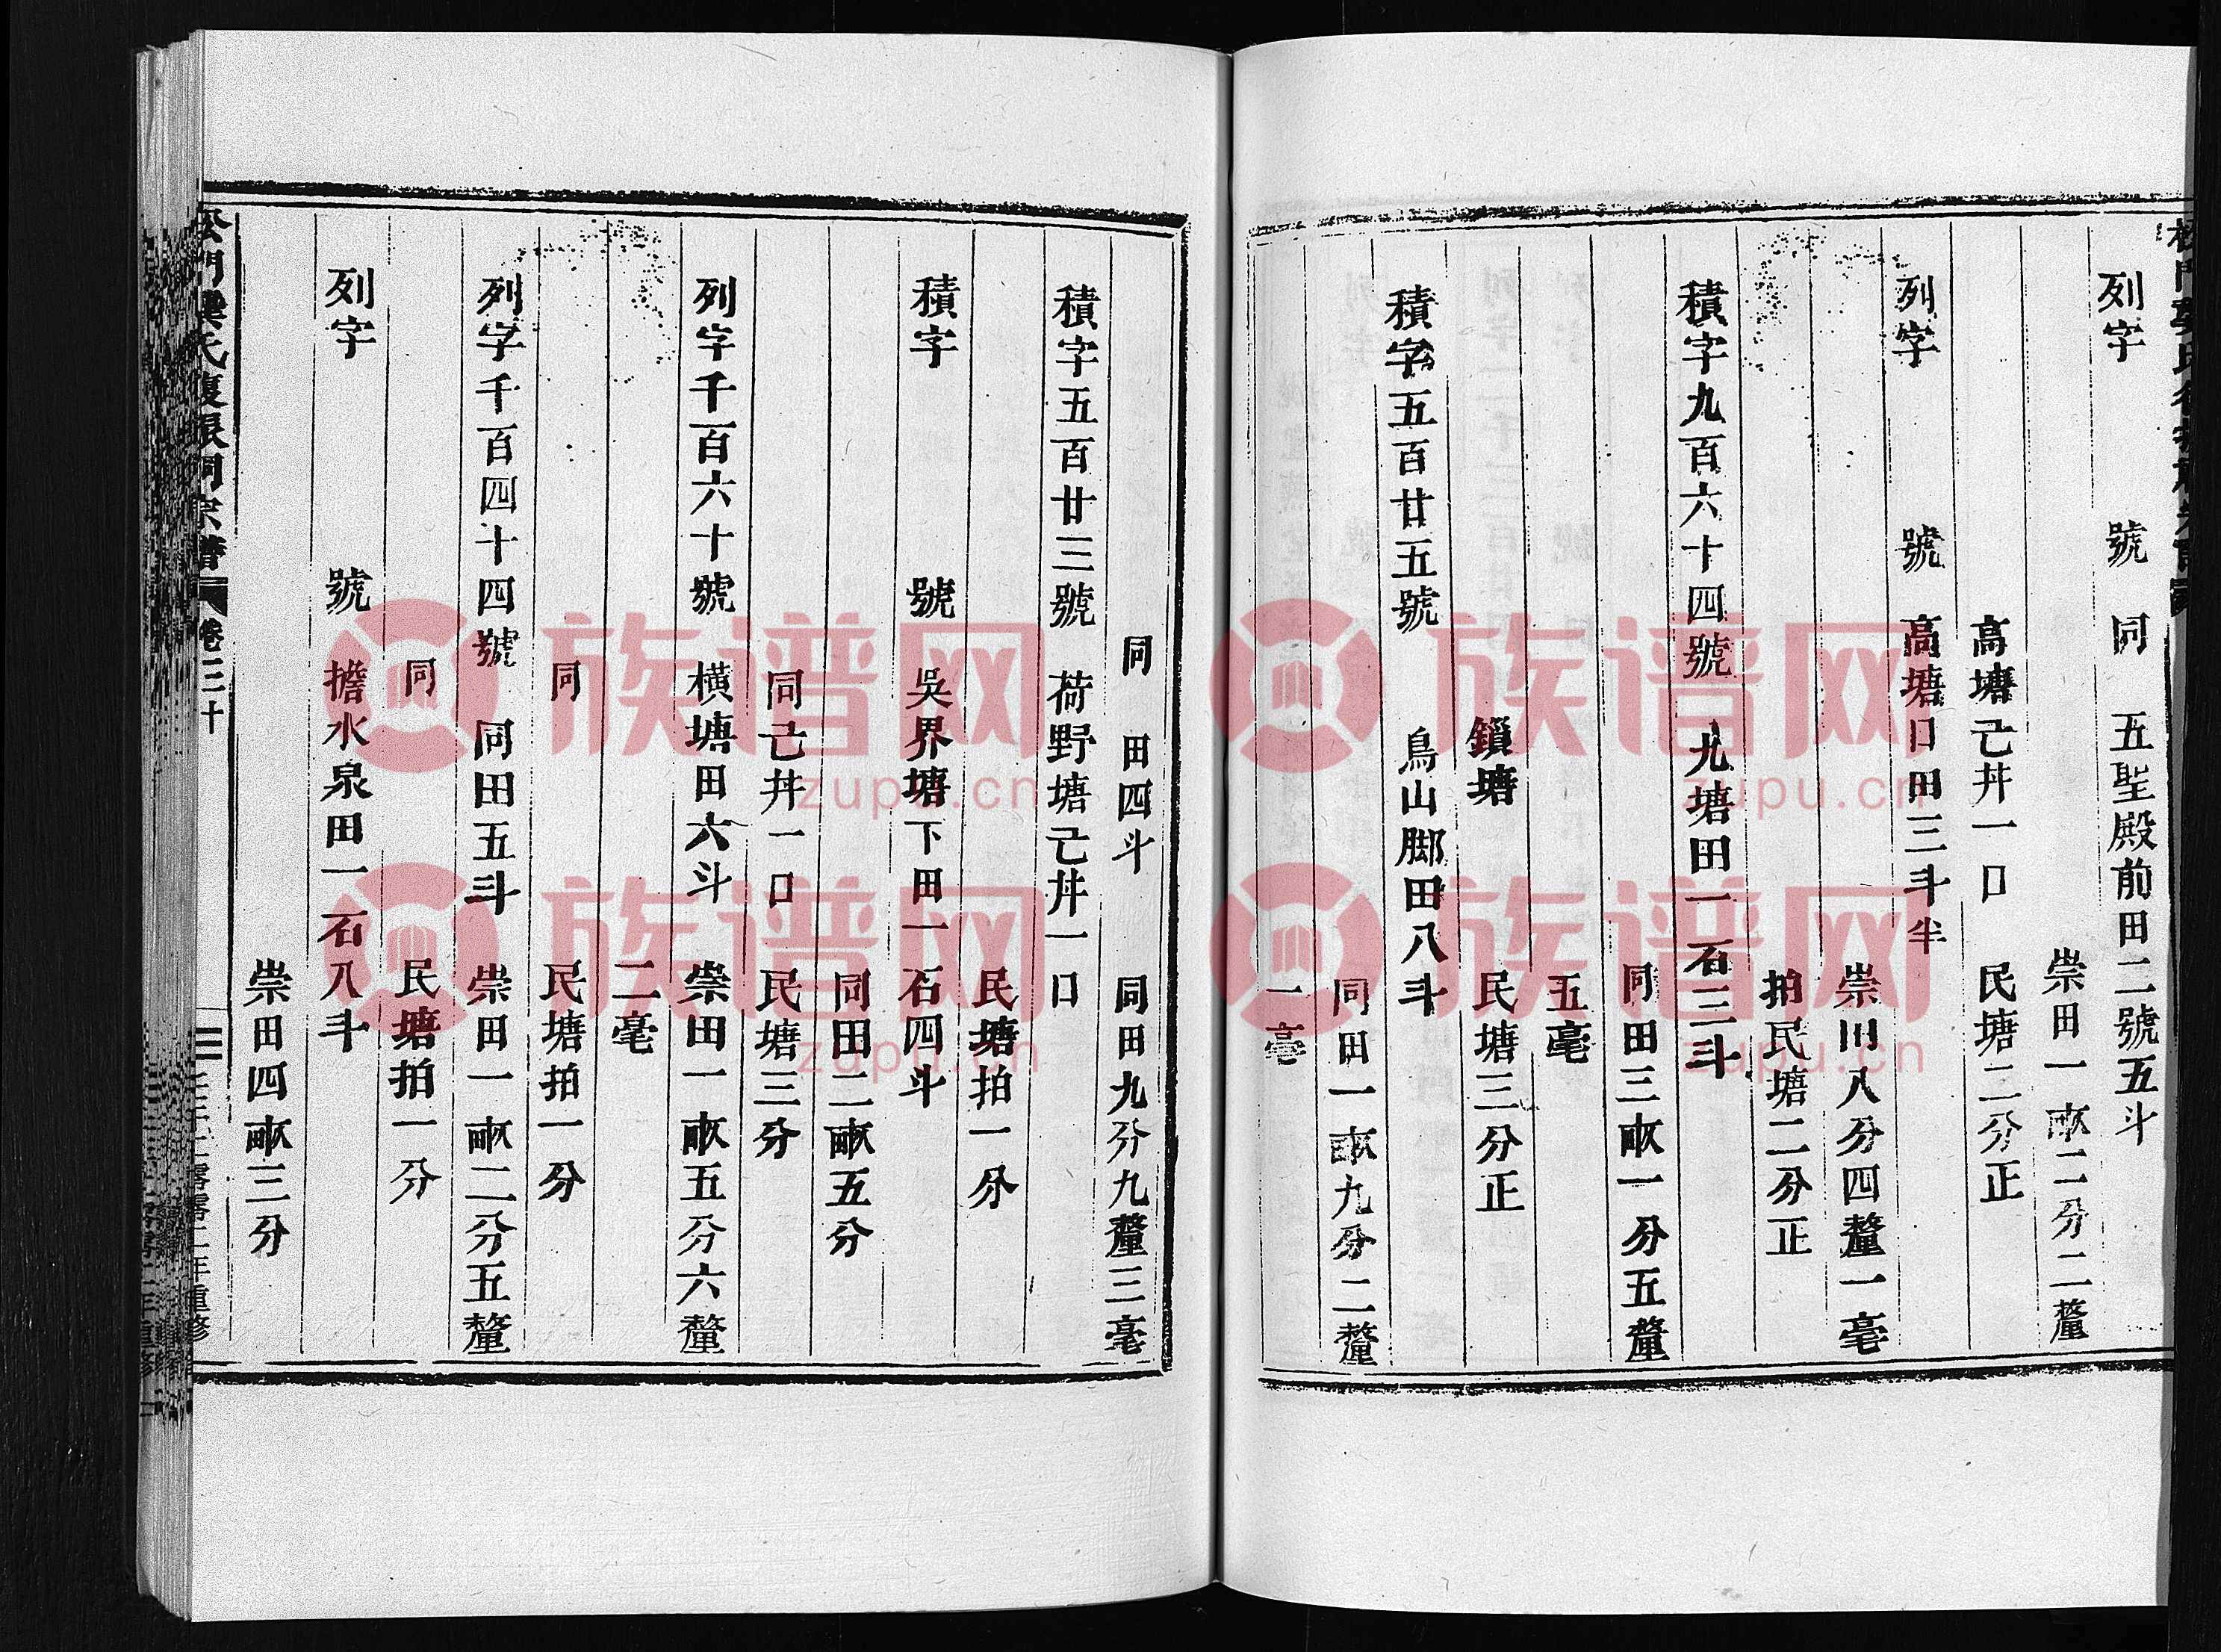 列字 號 同 五聖殿前田二號五斗
崇田一畝二分二釐
高塘己丼一口 民塘二分正
列字 號 高塘口田三斗半
崇田八分四釐一毫
拍民塘二分正
積字九百六十四號 九塘田一石三斗
同田三畝一分五釐
五毫
鎖塘 民塘三分正
積字五百廿五號 鳥山脚田八斗
同田一畝九分二釐
一毫
同 田四斗 同田九分九釐三毫
積字五百廿三號 荷野塘己丼一口
民塘拍一分
積字 號 吳界塘下田一石四斗
同田二畝五分
同己丼一口 民塘三分
列字千百六十號 橫塘田六斗 崇田一畝五分六釐
二毫
同 民塘拍一分
列字千百四十四號 同田五斗 崇田一畝二分五釐
同 民塘拍一分
列字 號 擔水泉田一石八斗
崇田四畝三分
松門龔氏復振祠宗譜 卷三十 二零零二年重修
族谱网
zupu.cn
族谱网
zupu.cn
族谱网
zupu.cn
族谱网
zupu.cn